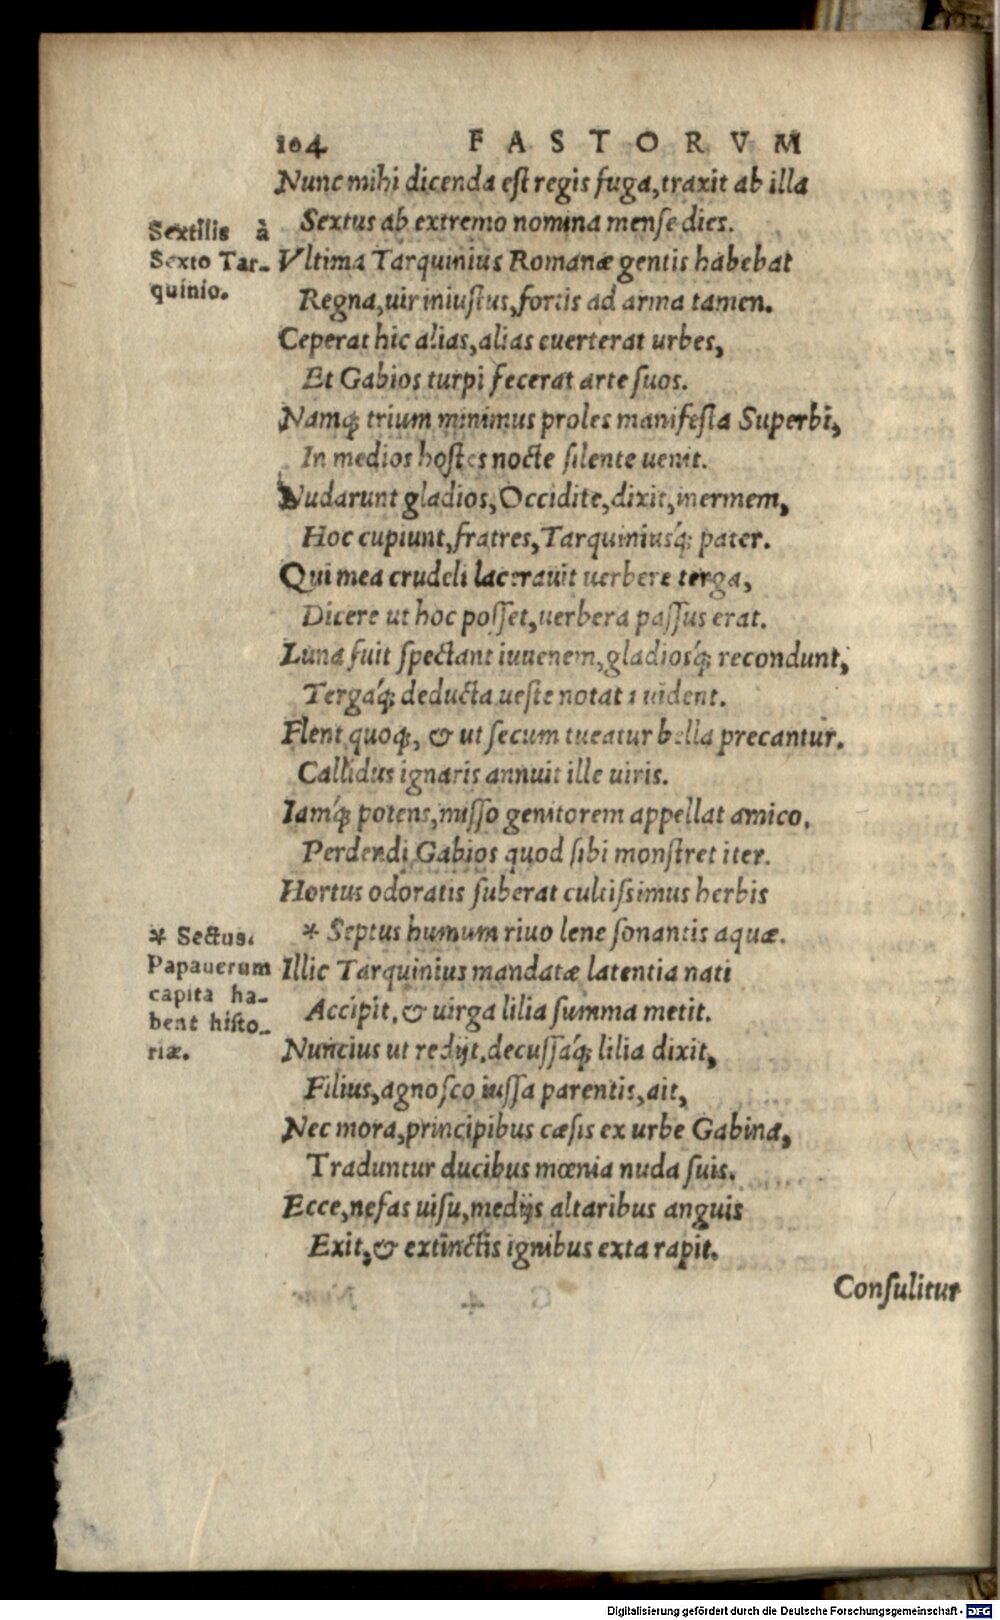 104 FASTORVM
Nunc mihi dicenda est regis fuga, traxit ab illa
Sextus ab extremo nomina mense dies.
Vltima Tarquinius Romanæ gentis habebat
Regna, uir iniustus, fortis ad arma tamen.
Ceperat hic alias, alias euerterat urbes,
Et Gabios turpi fecerat arte suos.
Namq; trium minimus proles manifesta Superbi,
In medios hostes nocte silente uenit.
Nudarunt gladios, Occidite, dixit, inermem,
Hoc cupiunt, fratres, Tarquiniusq́; pater.
Qui mea crudeli lacerauit uerbere terga,
Dicere ut hoc posset, uerbera passus erat.
Luna fuit spectant iuuenem, gladiosq́; recondunt,
Tergaq́; deducta ueste notata uident.
Flent quoq;, & ut secum tueatur bella precantur.
Callidus ignaris annuit ille uiris.
Iamq́; potens, misso genitorem appellat amico,
Perdendi Gabios quod sibi monstret iter.
Hortus odoratis suberat cultissimus herbis
* Septus humum riuo lene sonantis aquæ.
Illic Tarquinius mandatæ latentia nati
Accipit, & uirga lilia summa metit.
Nuncius ut redijt, decussaq́; lilia dixit,
Filius, agnosco iussa parentis, ait,
Nec mora, principibus cæsis ex urbe Gabina,
Traduntur ducibus mœnia nuda suis.
Ecce, nefas uisu, medijs altaribus anguis
Exit, & extinctis ignibus exta rapit.
Consulitur
Sextilis à
Sexto Tar-
quinio.
* Sectus.
Papauerum
capita ha-
bent histo-
riæ.
Digitalisierung gefördert durch die Deutsche Forschungsgemeinschaft - DFG